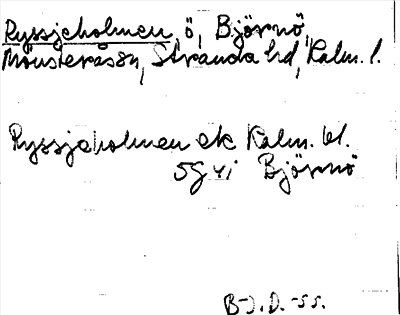 Ryssjeholmen, ö, Björnö,
Mönsterås sn, Stranda hd, Kalm. l.
Ryssjeholmen ek Kalm. bl.
5G vi Björnö
B-J.D.-55.